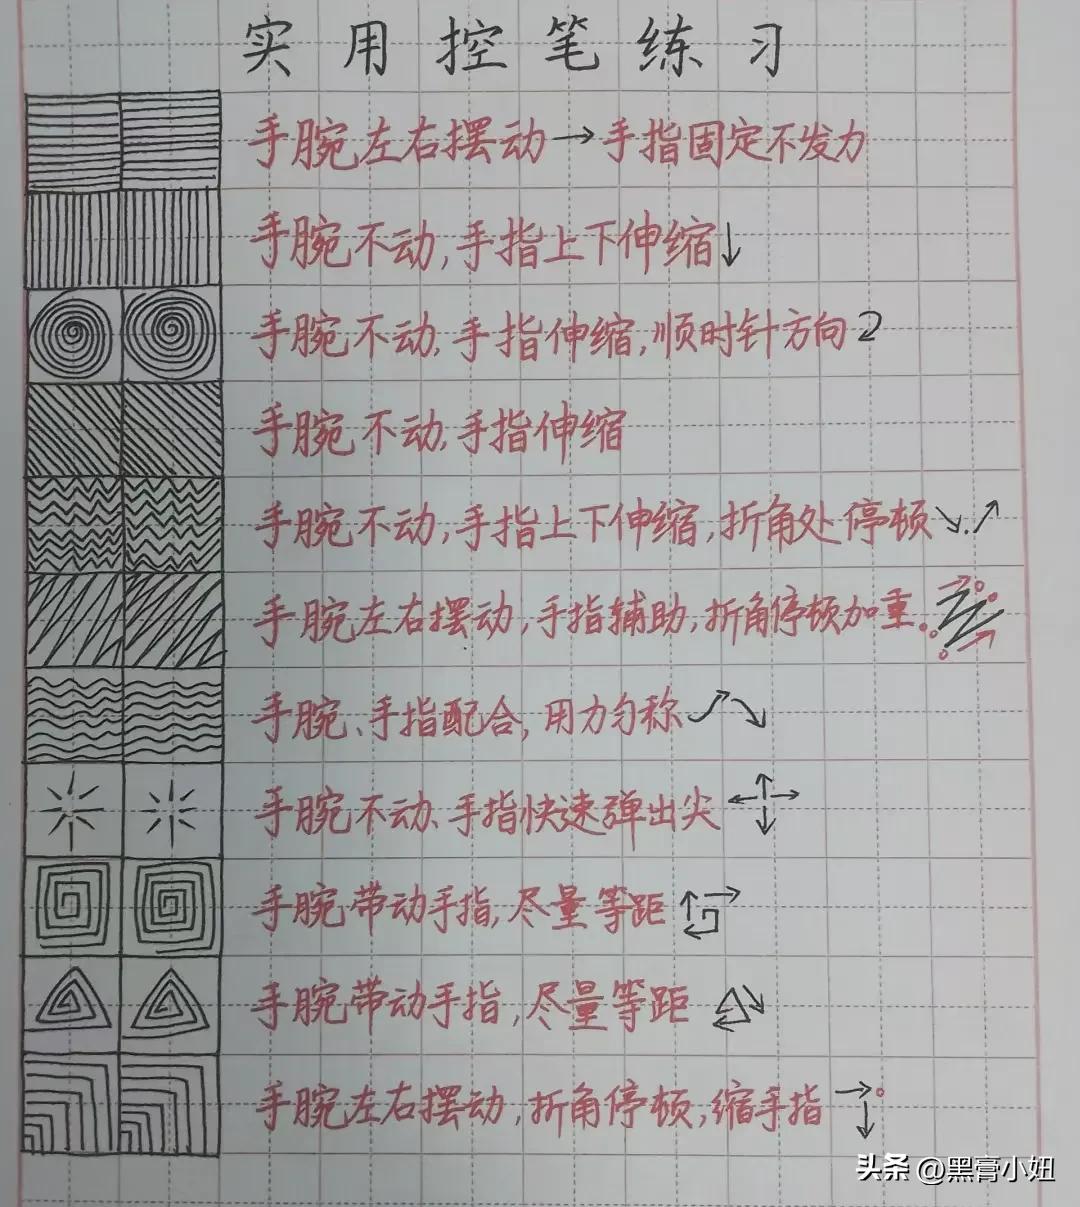 实用控笔练习
手腕左右摆动→手指固定不发力
手腕不动,手指上下伸缩↓
手腕不动,手指伸缩,顺时针方向
手腕不动,手指伸缩
手腕不动,手指上下伸缩,折角处停顿↘.↗
手腕左右摆动,手指辅助,折角停顿加重.
手腕、手指配合,用力匀称
手腕不动、手指快速弹出尖
手腕带动手指,尽量等距
手腕带动手指,尽量等距
手腕左右摆动,折角停顿,缩手指
头条 @黑膏小妞